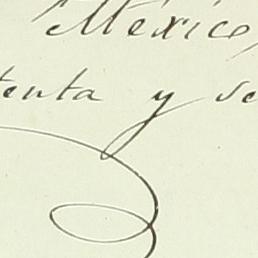 México,
tenta y se